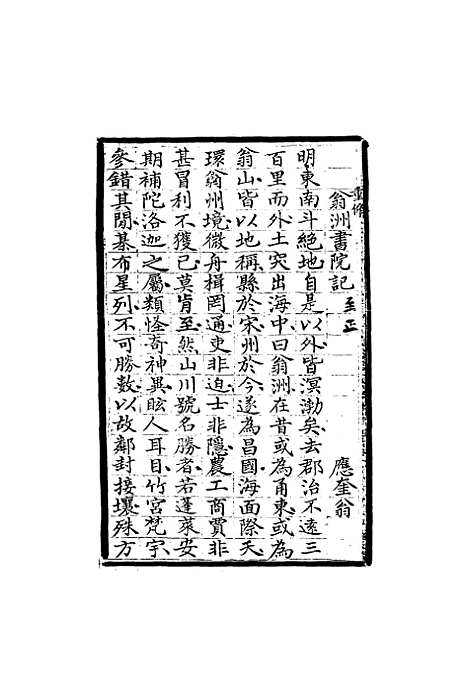 重脩
翁洲書院記 至正 應奎翁
明東南斗絶地自是以外皆溟渤矣去郡治不遠三
百里而外土突出海中曰翁洲在昔或為甬東或為
翁山皆以地稱縣於宋州於今遂為昌國海面際天
環翁州境微舟楫罔通吏非迫士非隱農工商賈非
甚冒利不獲已莫肯至然山川號名勝者若蓬萊安
期補陀洛迦之屬類怪奇神異眩人耳目竹宮梵宇
參錯其間棊布星列不可勝數以故鄰封接壤殊方